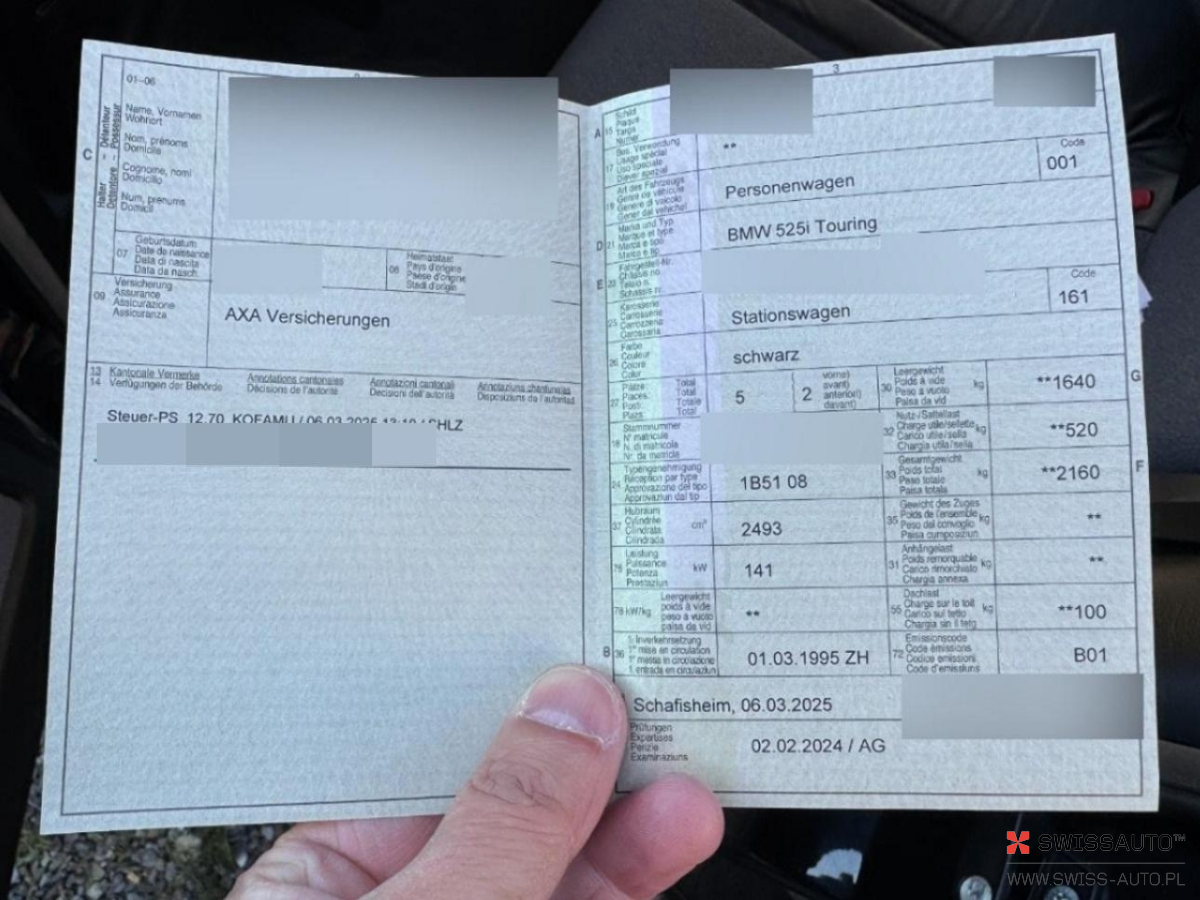 01–06
Halter
Détenteur
Detentore
Possessur
Name, Vornamen
Wohnort
Nom, prénoms
Domicile
Cognome, nomi
Domicilio
Num, prenums
Domicil
C
07
Geburtsdatum
Date de naissance
Data di nascita
Data da nasch.
08
Heimatstaat
Pays d'origine
Paese d'origine
Stadi d'origin
09
Versicherung
Assurance
Assicurazione
Assicuranza
AXA Versicherungen
13
14
Kantonale Vermerke
Verfügungen der Behörde
Annotations cantonales
Décisions de l'autorité
Annotazioni cantonali
Decisioni dell'autorità
Annotaziuns chantunalas
Disposiziuns da l'autoritad
Steuer-PS 12.70
3
A 15
Schild
Plaque
Targa
Numer
17
Bes. Verwendung
Usage spécial
Uso speciale
Diever spezial
**
19
Art des Fahrzeugs
Genre de véhicule
Genere di veicolo
Gener dal vehichel
Personenwagen
Code
001
D 21
Marke und Typ
Marque et type
Marca e tipo
Marca e tip
BMW 525i Touring
E 23
Fahrgestell-Nr.
Châssis no.
Telaio n.
Schassis nr.
25
Karosserie
Carrosserie
Carrozzeria
Carossaria
Stationswagen
Code
161
26
Farbe
Couleur
Colore
Color
schwarz
27
Plätze
Places
Posti
Plazs
Total
Total
Totale
Total
5
2
vorne)
avant)
anteriori)
davant)
30
Leergewicht
Poids à vide
Peso a vuoto
Paisa da vid
kg
**1640
G
18
Stammnummer
N° matricule
N. di matricola
Nr. da matricla
32
Nutz-/Sattellast
Charge utile/sellette
Carico utile/sella
Chargia utila/sella
kg
**520
24
Typengenehmigung
Réception par type
Approvazione del tipo
Approvaziun dal tip
1B51 08
33
Gesamtgewicht
Poids total
Peso totale
Paisa totala
kg
**2160
F
37
Hubraum
Cylindrée
Cilindrata
Cilindrada
cm³
2493
35
Gewicht des Zuges
Poids de l'ensemble
Peso del convoglio
Paisa cumposiziun
kg
**
76
Leistung
Puissance
Potenza
Prestaziun
kW
141
31
Anhängelast
Poids remorquable
Carico rimorchiato
Chargia annexa
kg
**
78 kW/kg
Leergewicht
poids à vide
peso a vuoto
paisa da vid
**
55
Dachlast
Charge sur le toit
Carico sul tetto
Chargia sin il tetg
kg
**100
B 36
1. Inverkehrsetzung
1re mise en circulation
1a messa in circolazione
1. entrada en circulaziun
01.03.1995 ZH
72
Emissionscode
Code émissions
Codice emissioni
Code d'emissiuns
B01
Schafisheim, 06.03.2025
Prüfungen
Expertises
Perizie
Examinaziuns
02.02.2024 / AG
SWISSAUTO™
WWW.SWISS-AUTO.PL